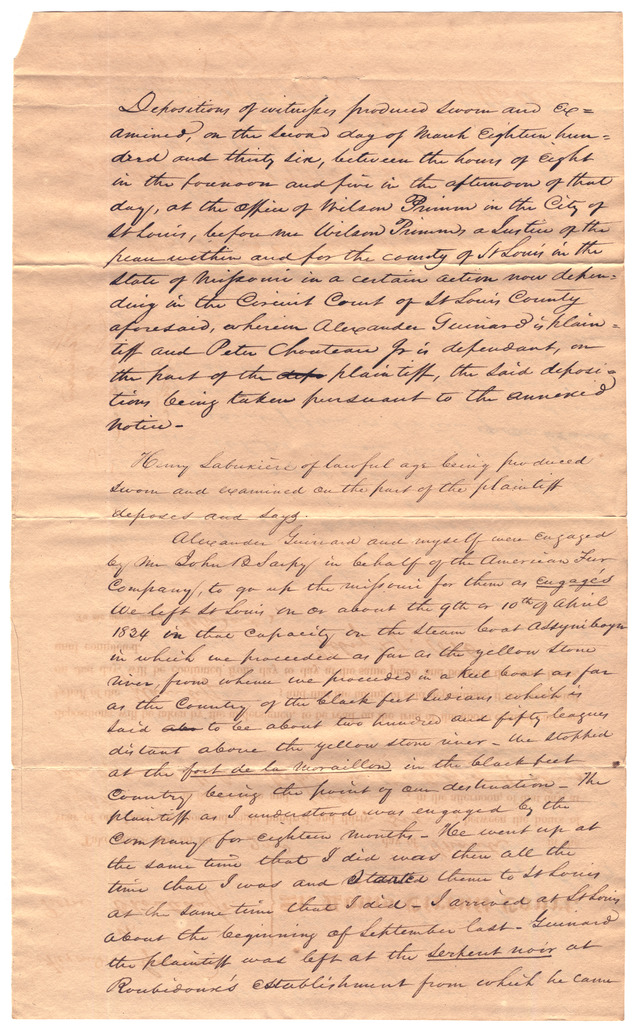 Depositions of witnesses produced sworn and ex=
amined, on the second day of March Eighteen hun-
derd and thirty six, between the hours of Eight
in the forenoon and five in the afternoon of that
day, at the office of Wilson Primm in the City of
St Louis, before me Wilson Primm a Justice of the
peace within and for the county of St Louis in the
State of Missouri in a certain action now depen-
ding in the Circuit Court of St Louis County
aforesaid, wherein Alexander Guinard is plain-
tiff and Peter Chouteau Jr is dependant, on
the part of the plaintiff, the said deposi-
tions being taken pursuant to the annexed
notice -
Henry Labuxiere of lawful age being produced
sworn and examined on the part of the plaintiff
deposes and says.
Alexander Guinard and myself were engaged
by Mr John B Sarpy in behalf of the American Fur
Company, to go up the missouri for them as engagés
We left St Louis on or about the 9th or 10th of April
1834 in that capacity on the Steam boat Assyniboyn
in which we proceeded as far as the yellow stone
river, from whence we proceeded in a keel boat as far
as the Country of the black feet Indians which is
said to be about two hundred and fifty leagues
distant above the yellow stone river - We stopped
at the fort de la Moraillon in the black feet
Country being the point of our destination - The
plaintiff as I understood was engaged by the
Company for eighteen months - He went up at
the same time that I did was there all the
time that I was and started thence to St Louis
at the same time that I did - I arrived at St Louis
about the beginning of September last - Guinard
the plaintiff was left at the serpent noir at
Roubidoux's establishment from which he came